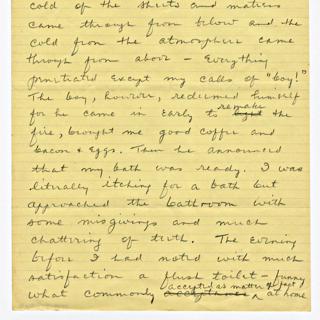 cold of the sheets and mattress
came through from below and the
cold from the atmosphere came
through from above – Everything
penetrated except my calls of "boy!"
The boy, however, redeemed himself
for he came in early to remake the
fire, brought me good coffee and
bacon & eggs. Then he announced
that my bath was ready. I was
literally itching for a bath but
approached the bathroom with
some misgivings and much
chattering of teeth. The evening
before I had noted with much
satisfaction a flush toilet – funny
what commonly accepted as matter of fact at home